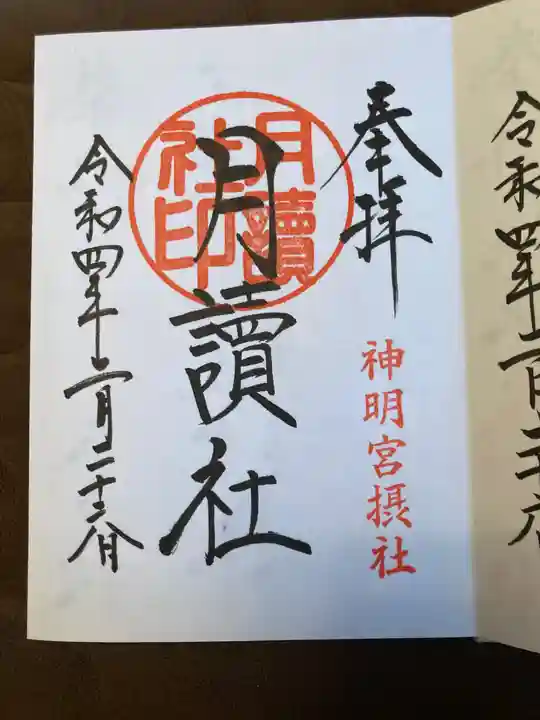 令和四年二月二十
奉拝
神明宮摂社
月讀社
月讀
社印
令和四年二月二十三日